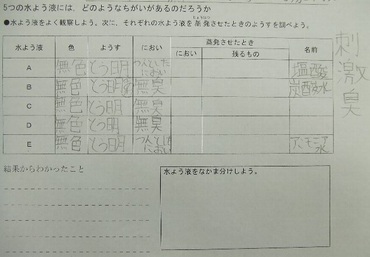 5つの水よう液には、どのようなちがいがあるのだろうか
●水よう液をよく観察しよう。次に、それぞれの水よう液を蒸発させたときのようすを調べよう。
水よう液 色 ようす におい 蒸発させたとき 名前
におい 残るもの
A 無色 とう明 つんとしたにおい 塩酸
B 無色 とう明 無臭 炭酸水
C 無色 とう明 無臭
D 無色 とう明 無臭
E 無色 とう明 つんとしたにおい アンモニア水
刺激臭
結果からわかったこと
水よう液をなかま分けしよう。